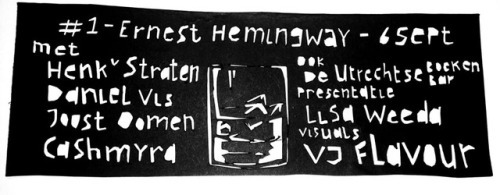 #1 - Ernest Hemingway - 6 sept
met
Henk v Straten
Daniel Vis
Joost Oomen
Cashmyra
ook
De Utrechtse Boeken Bar
presentatie
Lisa Weeda
visuals
VJ Flavour